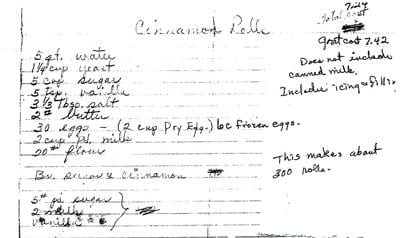 7.24
total cost
Cinnamon Rolls
Grst cost 7.42
5 qt. water
1 1/4 cup yeast
5 cup sugar
5 tsp. vanilla
3 1/3 tbsp. salt
2# butter
30 eggs - (2 cup Dry Egg.) 6c frozen eggs.
2 cup pd. milk
20# flour
Does not include
canned milk.
Includes icing & filling
Br. sugar & cinnamon
5# pd. sugar
2 milk
vanilla
This makes about
300 rolls.